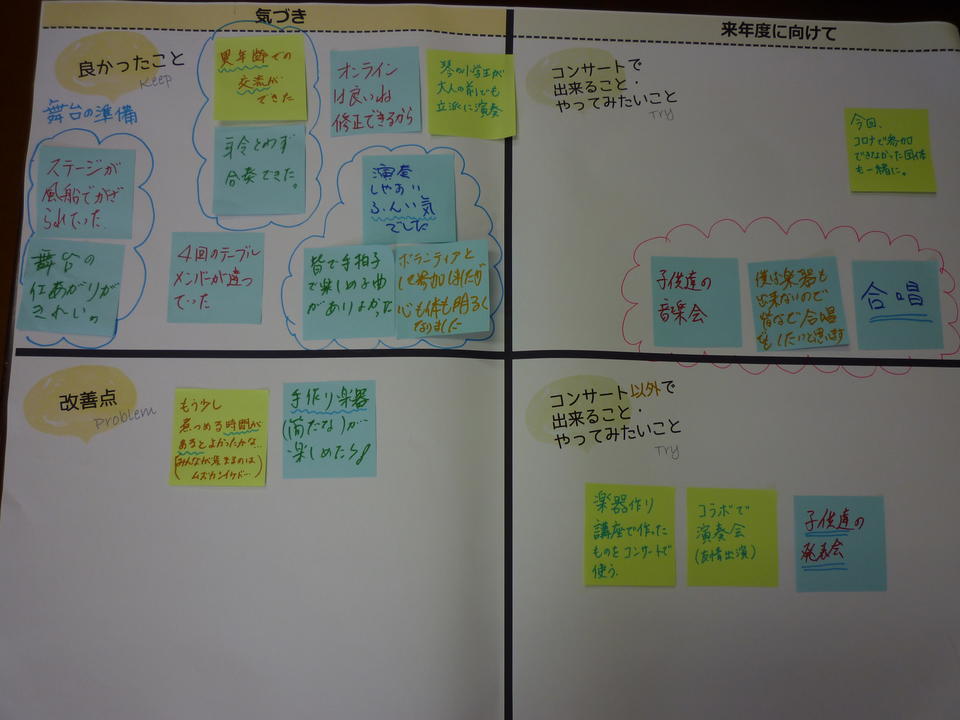 気づき
来年度に向けて
良かったこと
Keep
舞台の準備
異年齢での
交流が
できた
年令とわず
合奏できた。
オンライン
は良いね
修正できるから
琴の小学生が
大人の前でも
立派に演奏
ステージが
風船でかざ
られてった
舞台の
仕あがりが
きれい。
4回のテーブル
メンバーが違っ
てった
演奏
しやすい
ふんい気
でした
皆で手拍子
で楽しめる曲
がありよかった
ボランティアと
して参加しましたが
心も体も明るく
なりました
コンサートで
出来ること・
やってみたいこと
TRY
今回、
コロナで参加
できなかった団体
も一緒に。
子供達の
音楽会
僕は楽器も
出来ないので
皆なで合唱
もしたいと思います
合唱
改善点
Problem
もう少し
煮つめる時間が
あるとよかったかな…
(みんなが集まるのは
ムズカシイケド…)
手作り楽器
が…
楽しめたら
コンサート以外で
出来ること・
やってみたいこと
TRY
楽器作り
講座で作った
ものをコンサートで
使う.
コラボで
演奏会
(友情出演)
子供達の
発表会